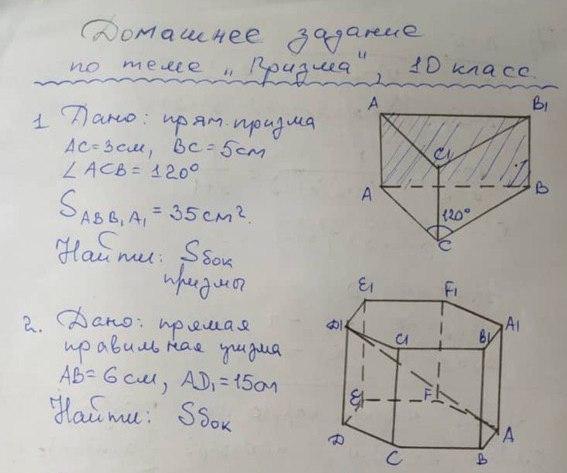 Домашнее задание
по теме „Призма", 10 класс.
1 Дано: прям. призма
AC=3см, BC=5см
∠ACB=120°
S ABB₁A₁ = 35см².
Найти: Sбок
призмы
A
B1
C1
A
B
120°
C
2. Дано: прямая
правильная призма
AB=6см, AD₁=15см
Найти: Sбок
E1
F1
D1
C1
B1
A1
E
F
D
C
B
A